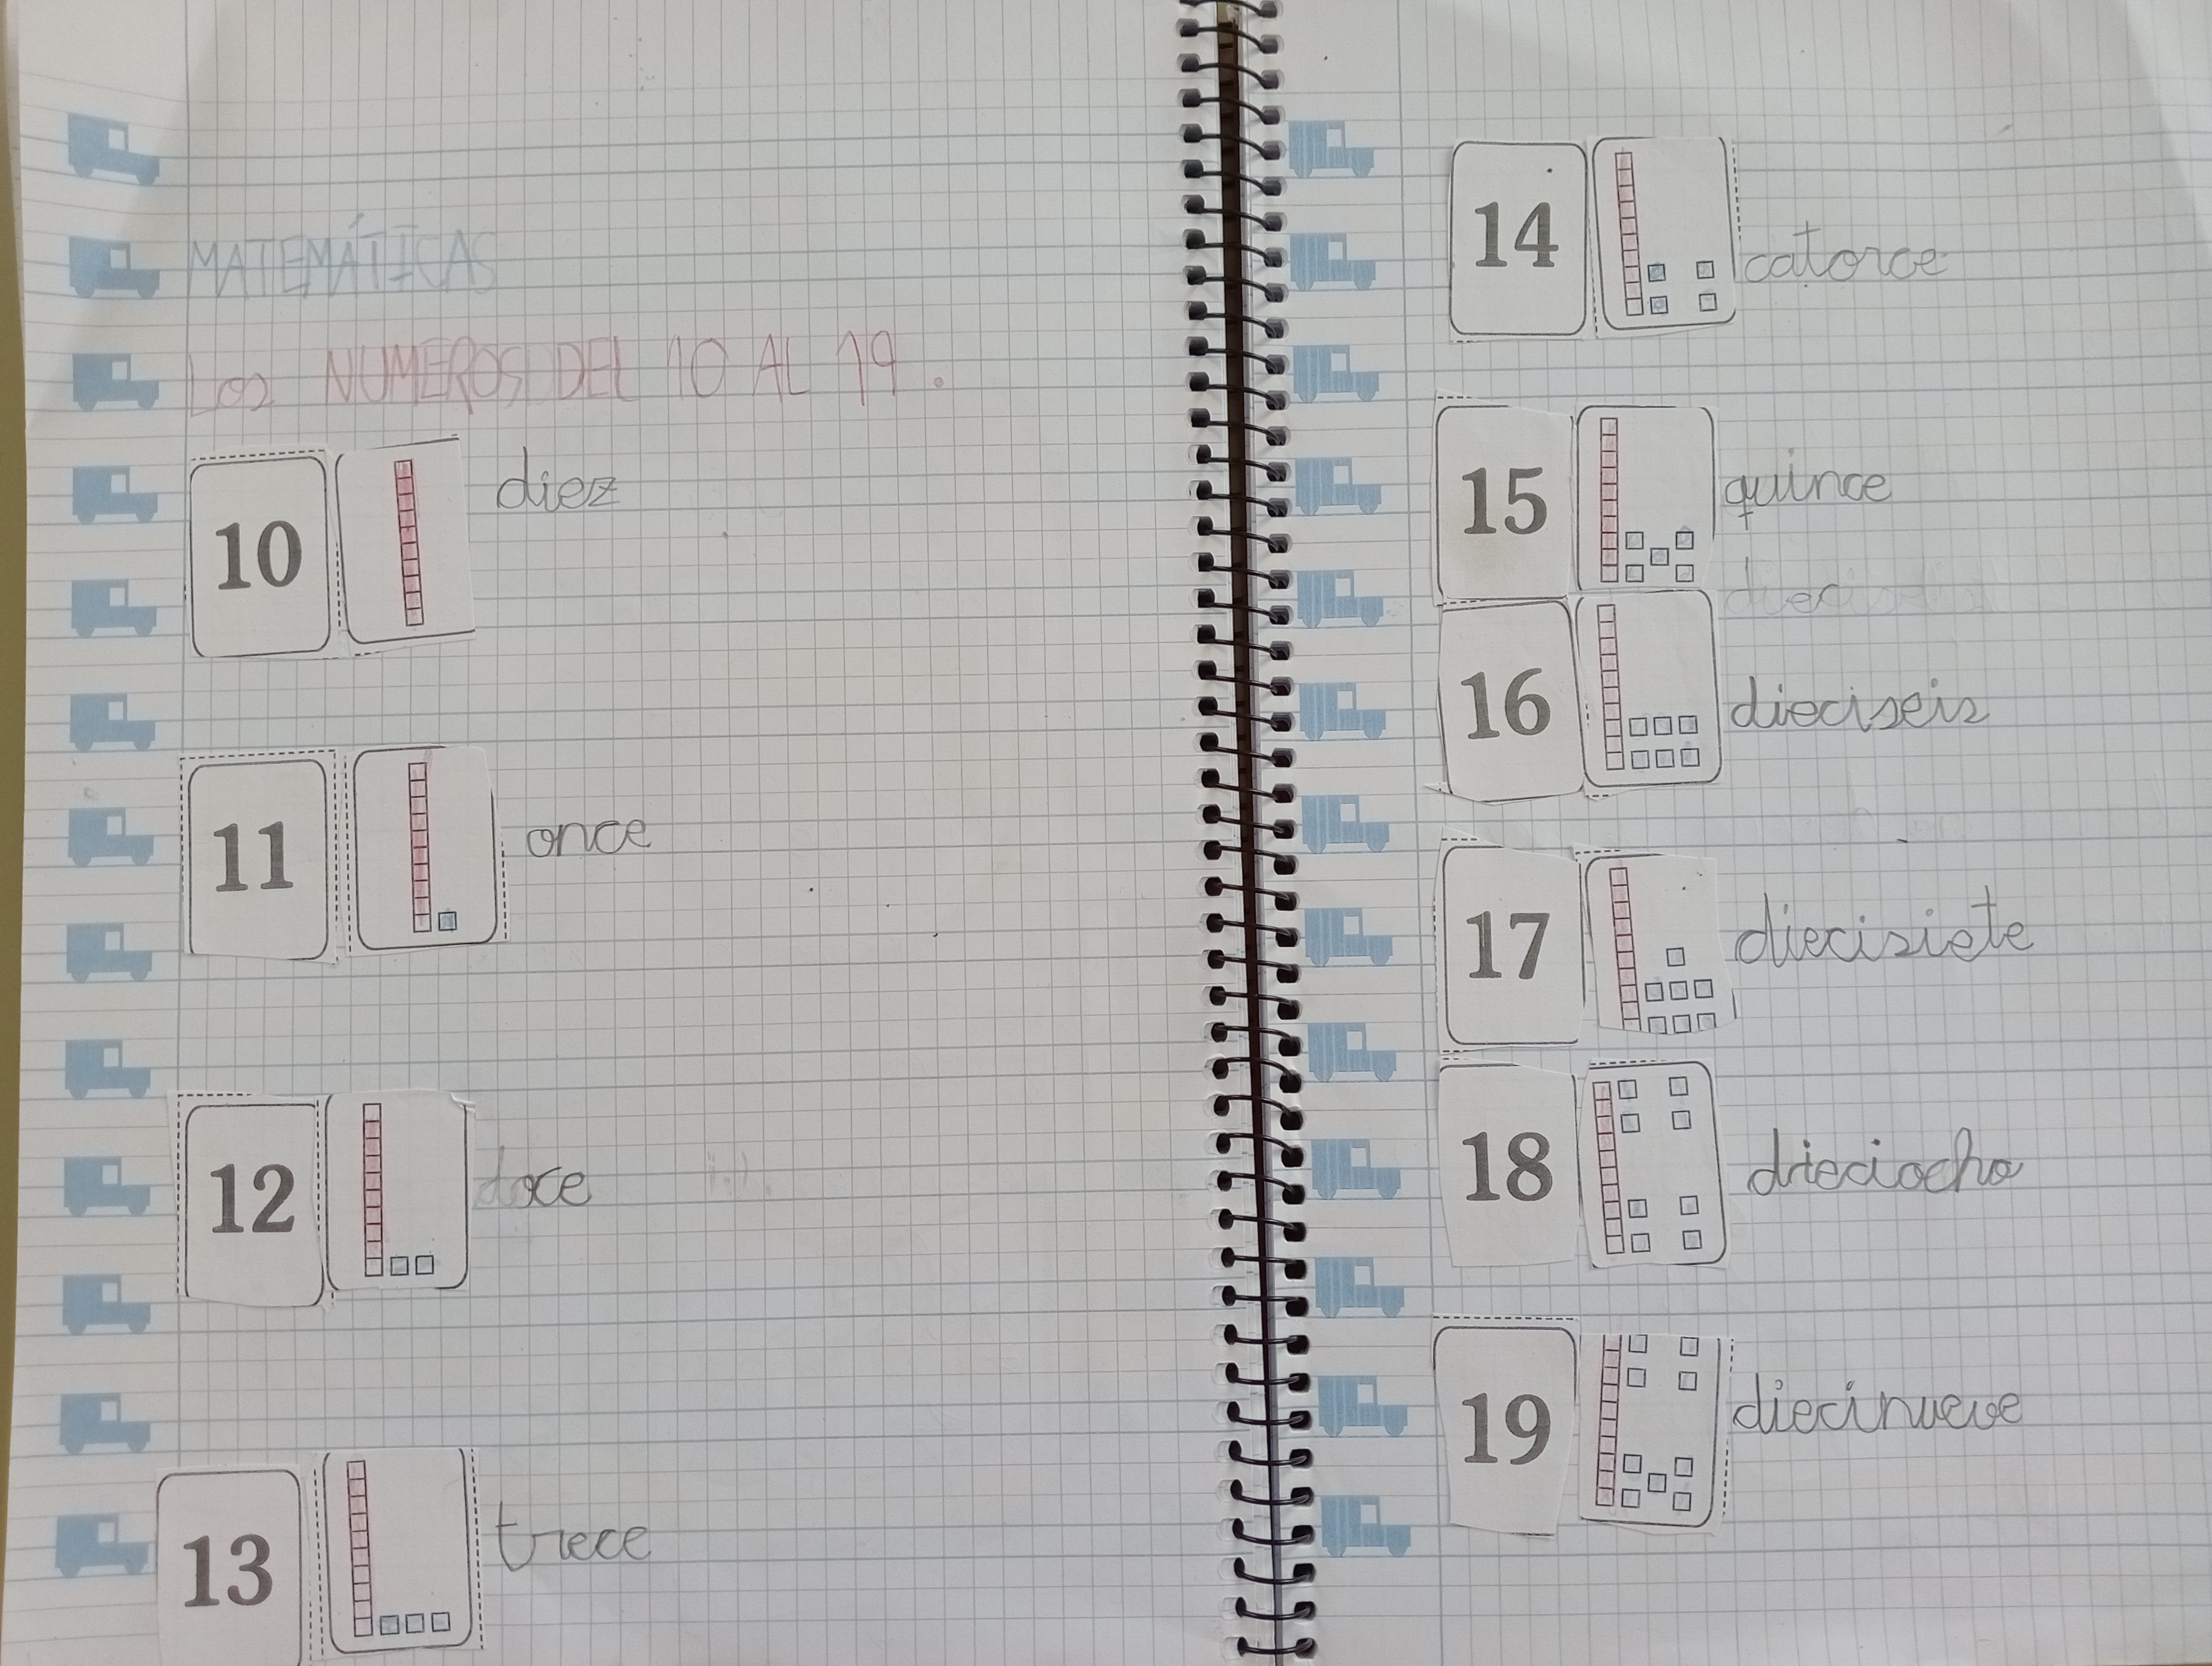 MATEMÁTICAS
Los NUMEROS DEL 10 AL 19.
10 diez
11 once
12 doce
13 trece
14 catorce
15 quince
dieci
16 dieciseis
17 diecisiete
18 dieciocho
19 diecinueve